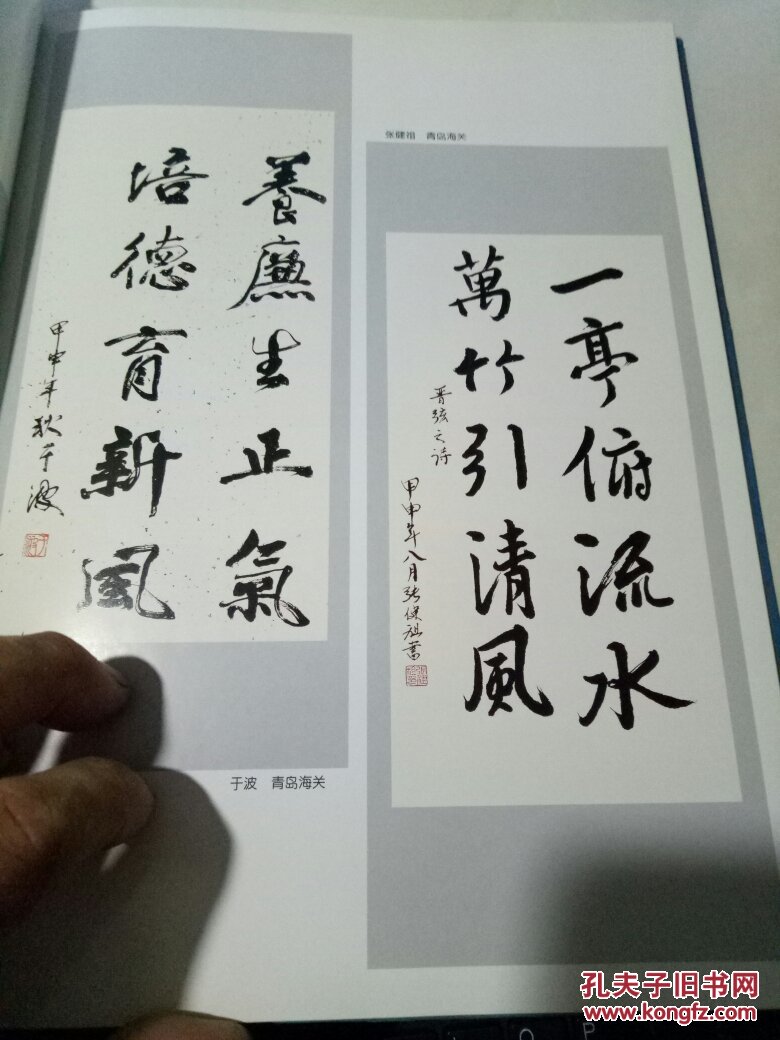 養廉生正氣
培德育新風
甲申年秋于波
于波 青岛海关
张健祖 青岛海关
一亭俯流水
萬竹引清風
晋弦之诗
甲申年八月张健祖書
孔夫子旧书网
www.kongfz.com
O P